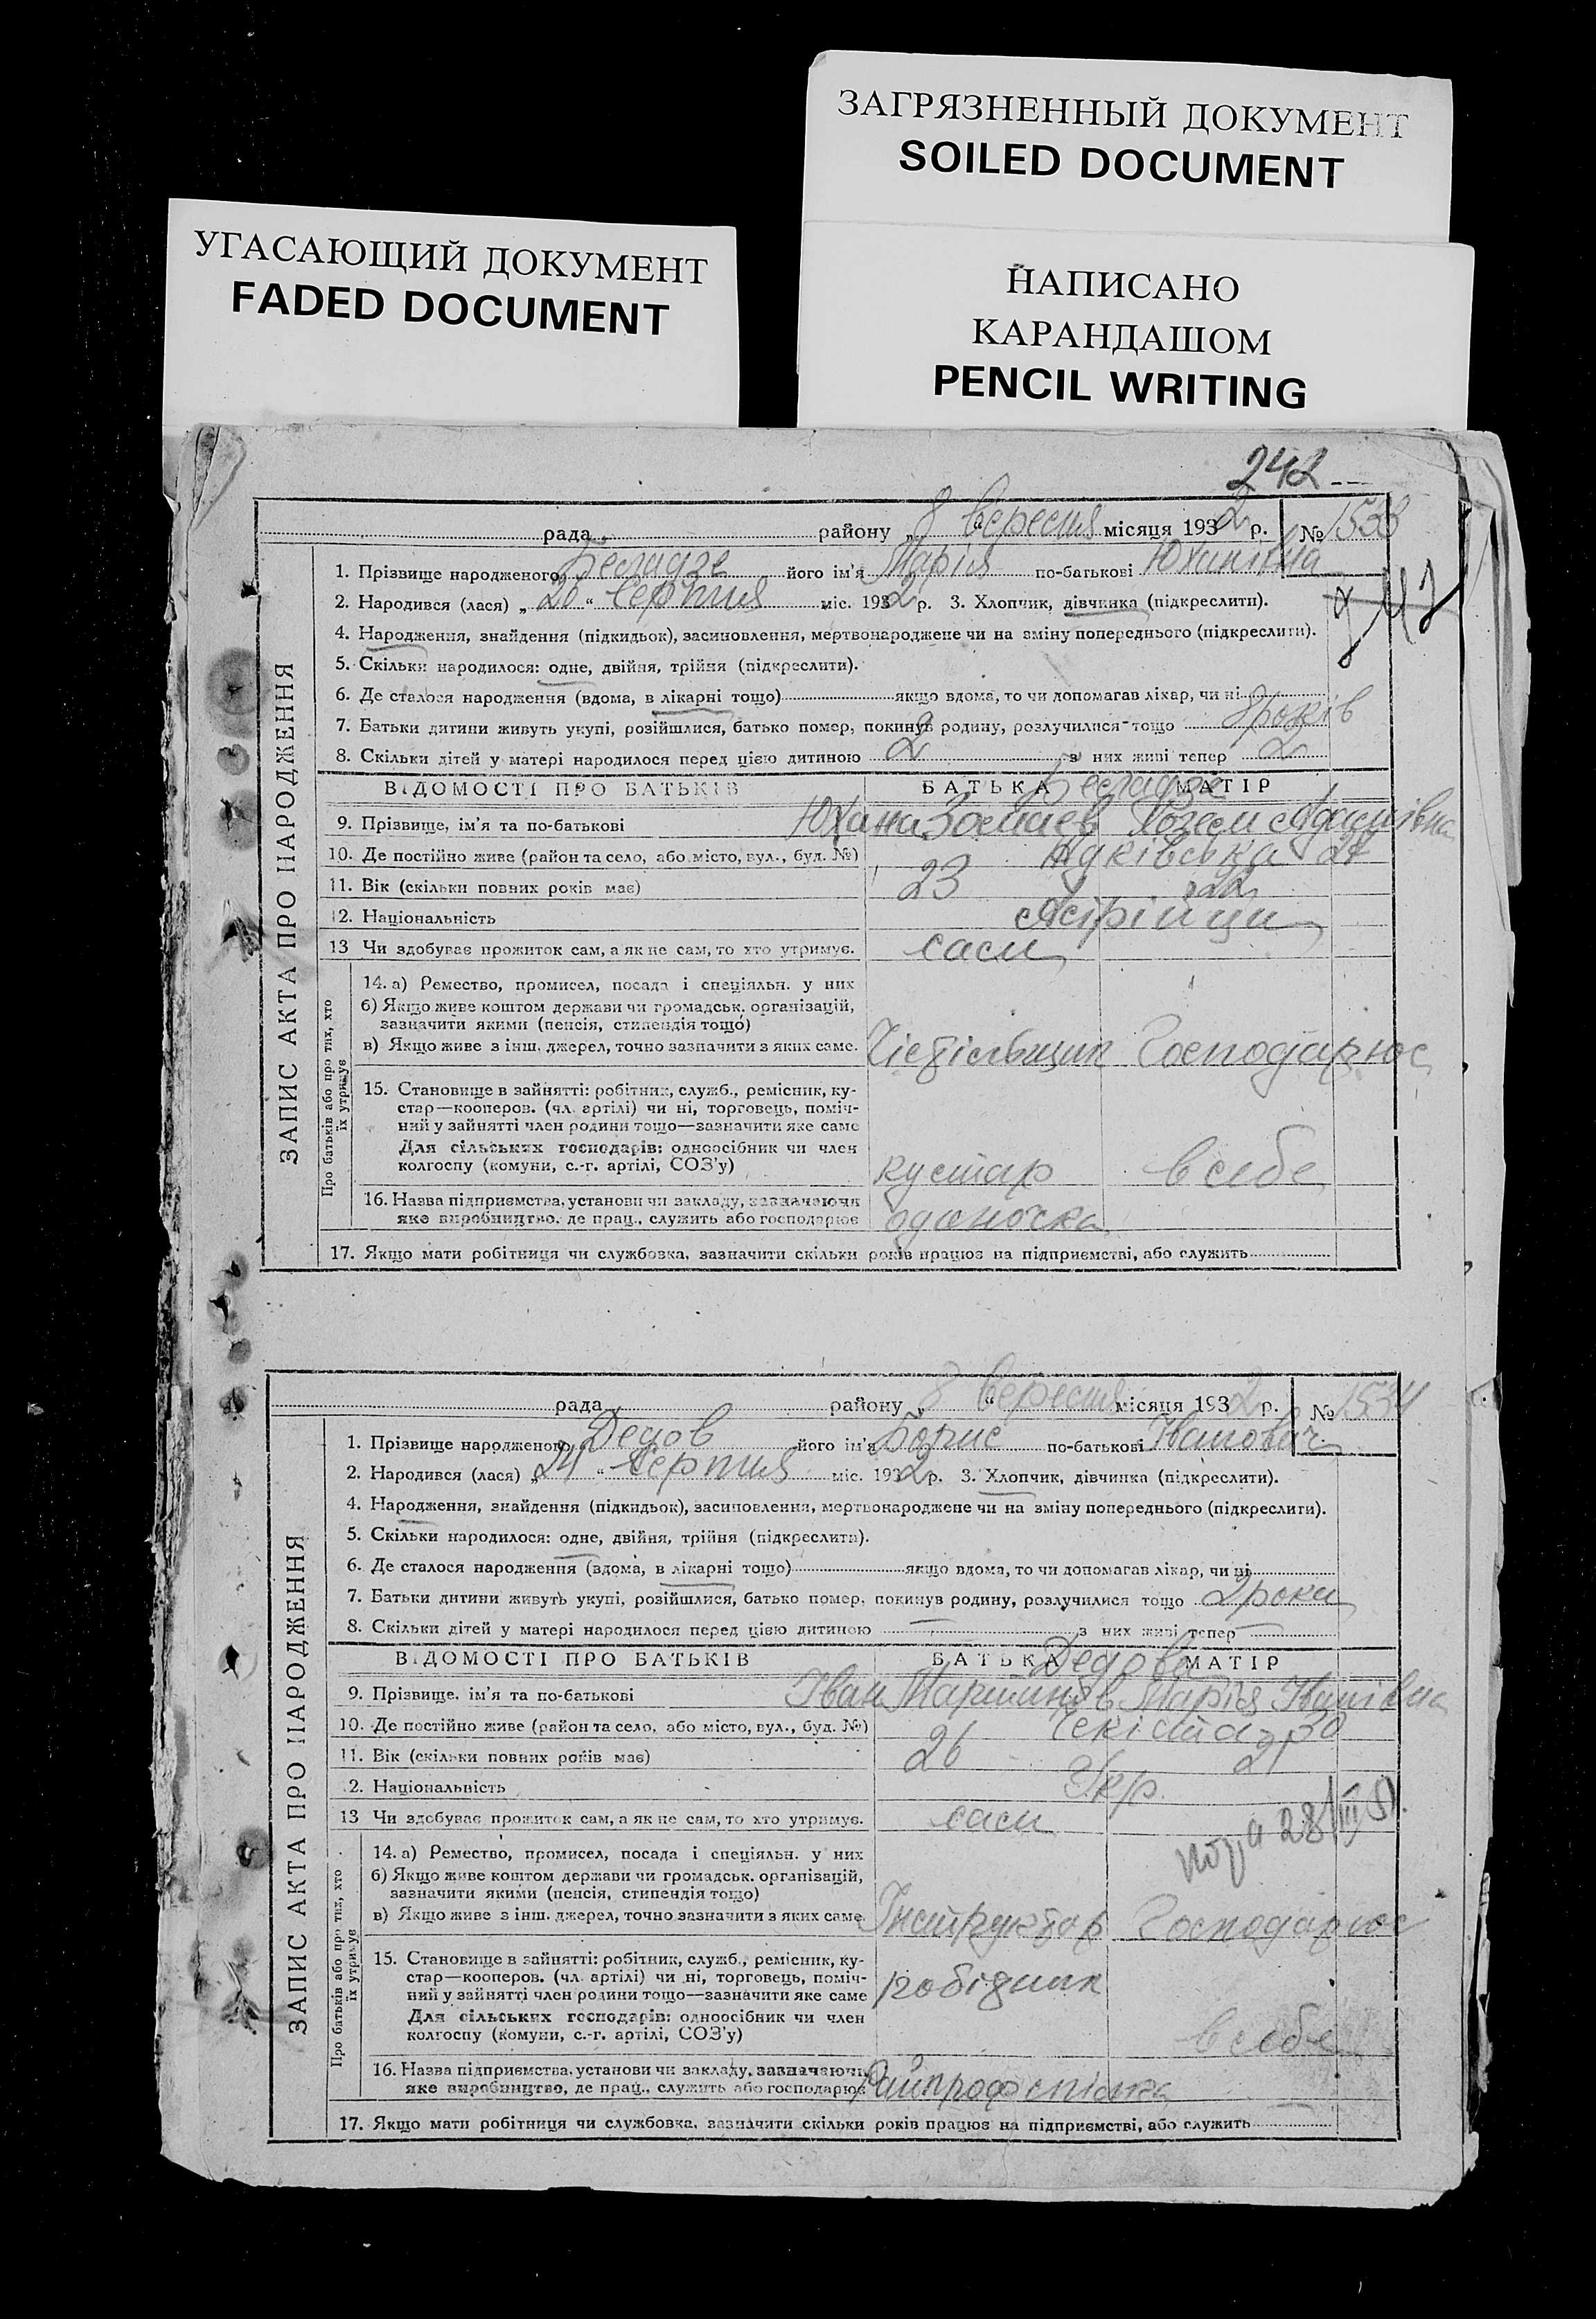 ЗАГРЯЗНЕННЫЙ ДОКУМЕНТ
SOILED DOCUMENT
УГАСАЮЩИЙ ДОКУМЕНТ
FADED DOCUMENT
НАПИСАНО
КАРАНДАШОМ
PENCIL WRITING
242
рада район у „8“ вересня місяця 1932 р. № 1533
ЗАПИС АКТА ПРО НАРОДЖЕННЯ
1. Прізвище народженого його ім'я Марія по-батькові
2. Народився (лася) „26“ серпня міс. 1932 р. 3. Хлопчик, дівчинка (підкреслити).
4. Народження, знайдення (підкидьок), засиновлення, мертвонароджене чи на зміну попереднього (підкреслити).
5. Скільки народилося: одне, двійня, трійня (підкреслити).
6. Де сталося народження (вдома, в лікарні тощо) якщо вдома, то чи допомагав лікар, чи ні
7. Батьки дитини живуть укупі, розійшлися, батько помер, покинув родину, розлучилися тощо 8 років
8. Скільки дітей у матері народилося перед цією дитиною 2 з них живі тепер 2
ВІДОМОСТІ ПРО БАТЬКІВ БАТЬКА МАТІР
9. Прізвище, ім'я та по-батькові
10. Де постійно живе (район та село, або місто, вул., буд. №)
11. Вік (скільки повних років має) 23 22
12. Національність Асірійци
13 Чи здобуває прожиток сам, а як не сам, то хто утримує. сам
Про батьків або про тих, хто їх утримує
14. а) Ремество, промисел, посада і спеціяльн. у них
б) Якщо живе коштом держави чи громадськ. організацій,
зазначити якими (пенсія, стипендія тощо)
в) Якщо живе з інш. джерел, точно зазначити з яких саме. Господарює
15. Становище в зайнятті: робітник, служб., ремісник, ку-
стар—кооперов. (чл. артілі) чи ні, торговець, поміч-
ний у зайнятті член родини тощо—зазначити яке саме
Для сільських господарів: одноосібник чи член
колгоспу (комуни, с.-г. артілі, СОЗ'у) кустар в себе
16. Назва підприємства, установи чи закладу, зазначаючи
яке виробництво, де прац., служить або господарює одиночка
17. Якщо мати робітниця чи службовка, зазначити скільки років працює на підприємстві, або служить
рада району „8“ вересня місяця 1932 р. № 1534
ЗАПИС АКТА ПРО НАРОДЖЕННЯ
1. Прізвище народженого Дедов його ім'я Борис по-батькові Іванович
2. Народився (лася) „24“ серпня міс. 1932 р. 3. Хлопчик, дівчинка (підкреслити).
4. Народження, знайдення (підкидьок), засиновлення, мертвонароджене чи на зміну попереднього (підкреслити).
5. Скільки народилося: одне, двійня, трійня (підкреслити).
6. Де сталося народження (вдома, в лікарні тощо) якщо вдома, то чи допомагав лікар, чи ні
7. Батьки дитини живуть укупі, розійшлися, батько помер, покинув родину, розлучилися тощо 2 роки
8. Скільки дітей у матері народилося перед цією дитиною — з них живі тепер —
ВІДОМОСТІ ПРО БАТЬКІВ БАТЬКА МАТІР
Дедови
9. Прізвище, ім'я та по-батькові Іван Мартинов Марія Іванівна
10. Де постійно живе (район та село, або місто, вул., буд. №) 30
11. Вік (скільки повних років має) 26 21
2. Національність Укр.
13 Чи здобуває прожиток сам, а як не сам, то хто утримує. сам
28/III 51.
Про батьків або про тих, хто їх утримує
14. а) Ремество, промисел, посада і спеціяльн. у них
б) Якщо живе коштом держави чи громадськ. організацій,
зазначити якими (пенсія, стипендія тощо)
в) Якщо живе з інш. джерел, точно зазначити з яких саме. Інструктор Господарює
15. Становище в зайнятті: робітник, служб., ремісник, ку-
стар—кооперов. (чл. артілі) чи ні, торговець, поміч-
ний у зайнятті член родини тощо—зазначити яке саме робітник
Для сільських господарів: одноосібник чи член
колгоспу (комуни, с.-г. артілі, СОЗ'у) в себе
16. Назва підприємства, установи чи закладу, зазначаючи
яке виробництво, де прац., служить або господарює Райпрофспілка
17. Якщо мати робітниця чи службовка, зазначити скільки років працює на підприємстві, або служить